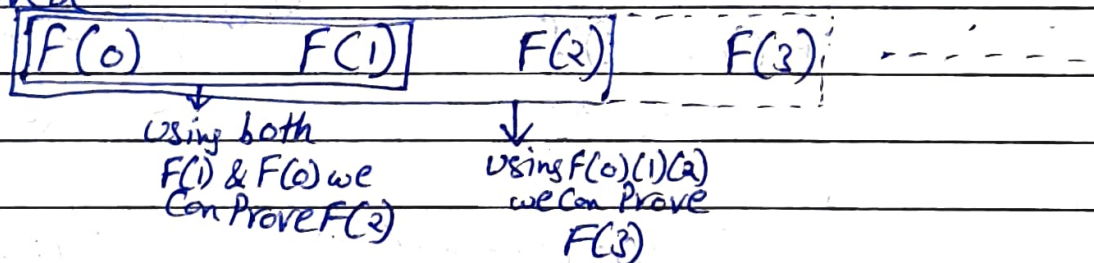 F(0) F(1) F(2) F(3) - - - - - -
Using both
F(1) & F(0) we
Can Prove F(2)
Using F(0)(1)(2)
we Can Prove
F(3)